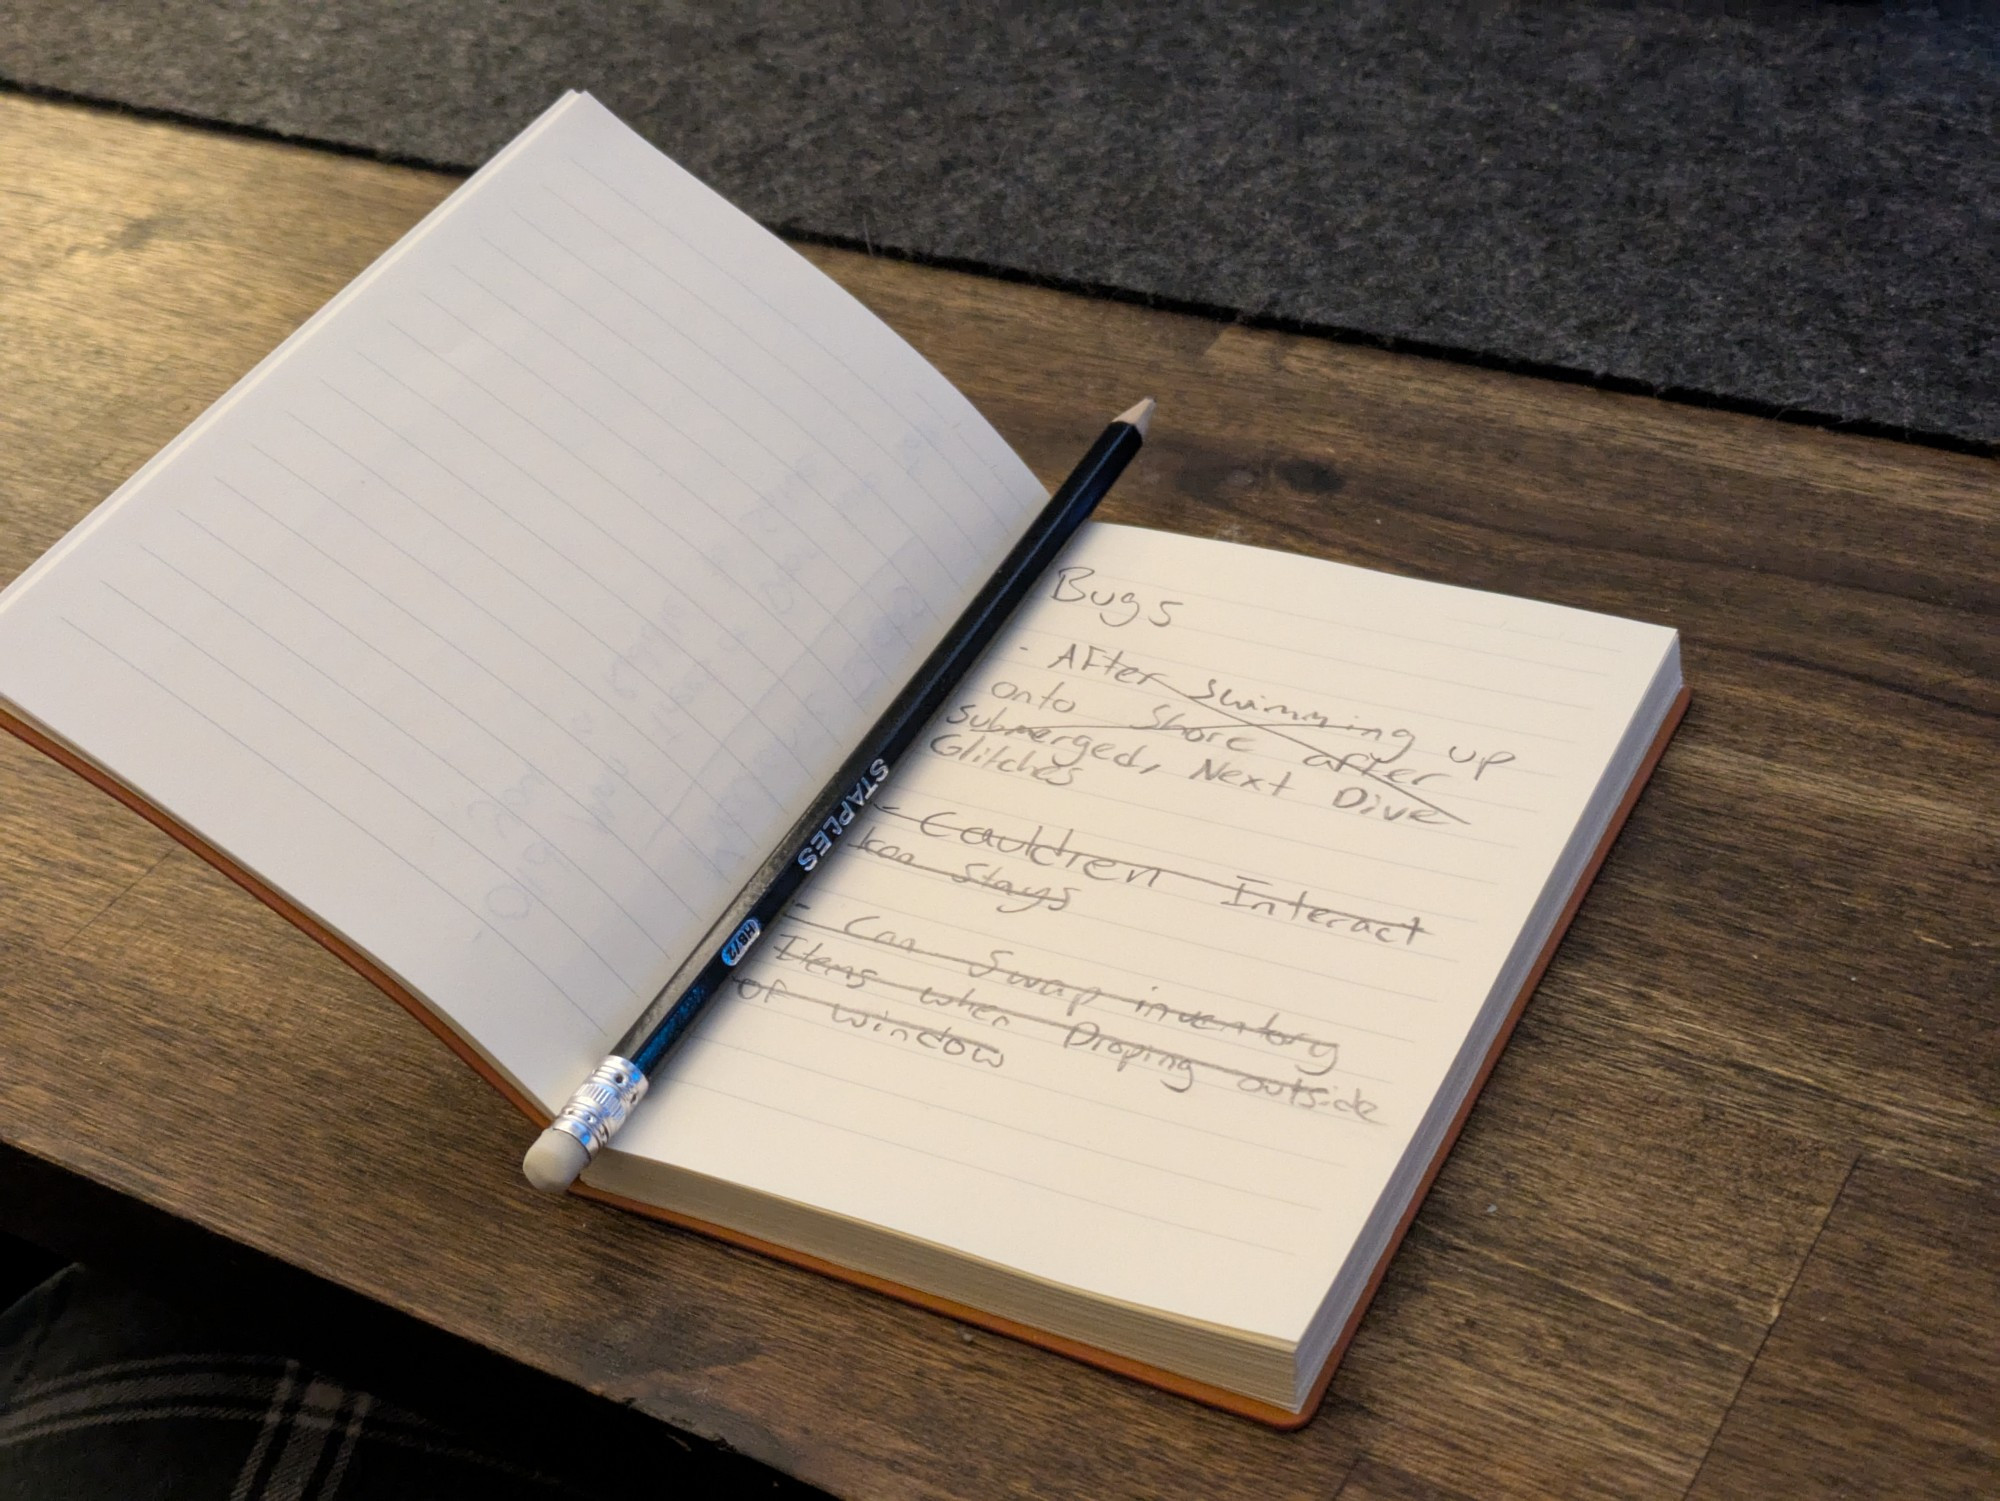 Bugs
- After swimming up
onto Shore after
Submerged, Next Dive
Glitches
- Cauldren Interact
Icon Stays
- Can Swap inventory
Items when Droping outside
of window
STAPLES
HB/2